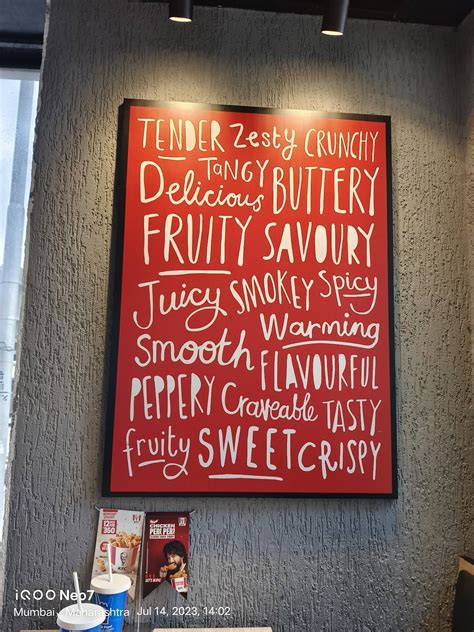 TENDER Zesty CRUNCHY
TANGY
Delicious BUTTERY
FRUITY SAVOURY
Juicy SMOKEY Spicy
Warming
Smooth FLAVOURFUL
PEPPERY Craveable TASTY
fruity SWEET CRISPY
CHICKEN
PERI PERI
350
iQOO Neo7
Mumbai, Maharashtra Jul 14, 2023, 14:02